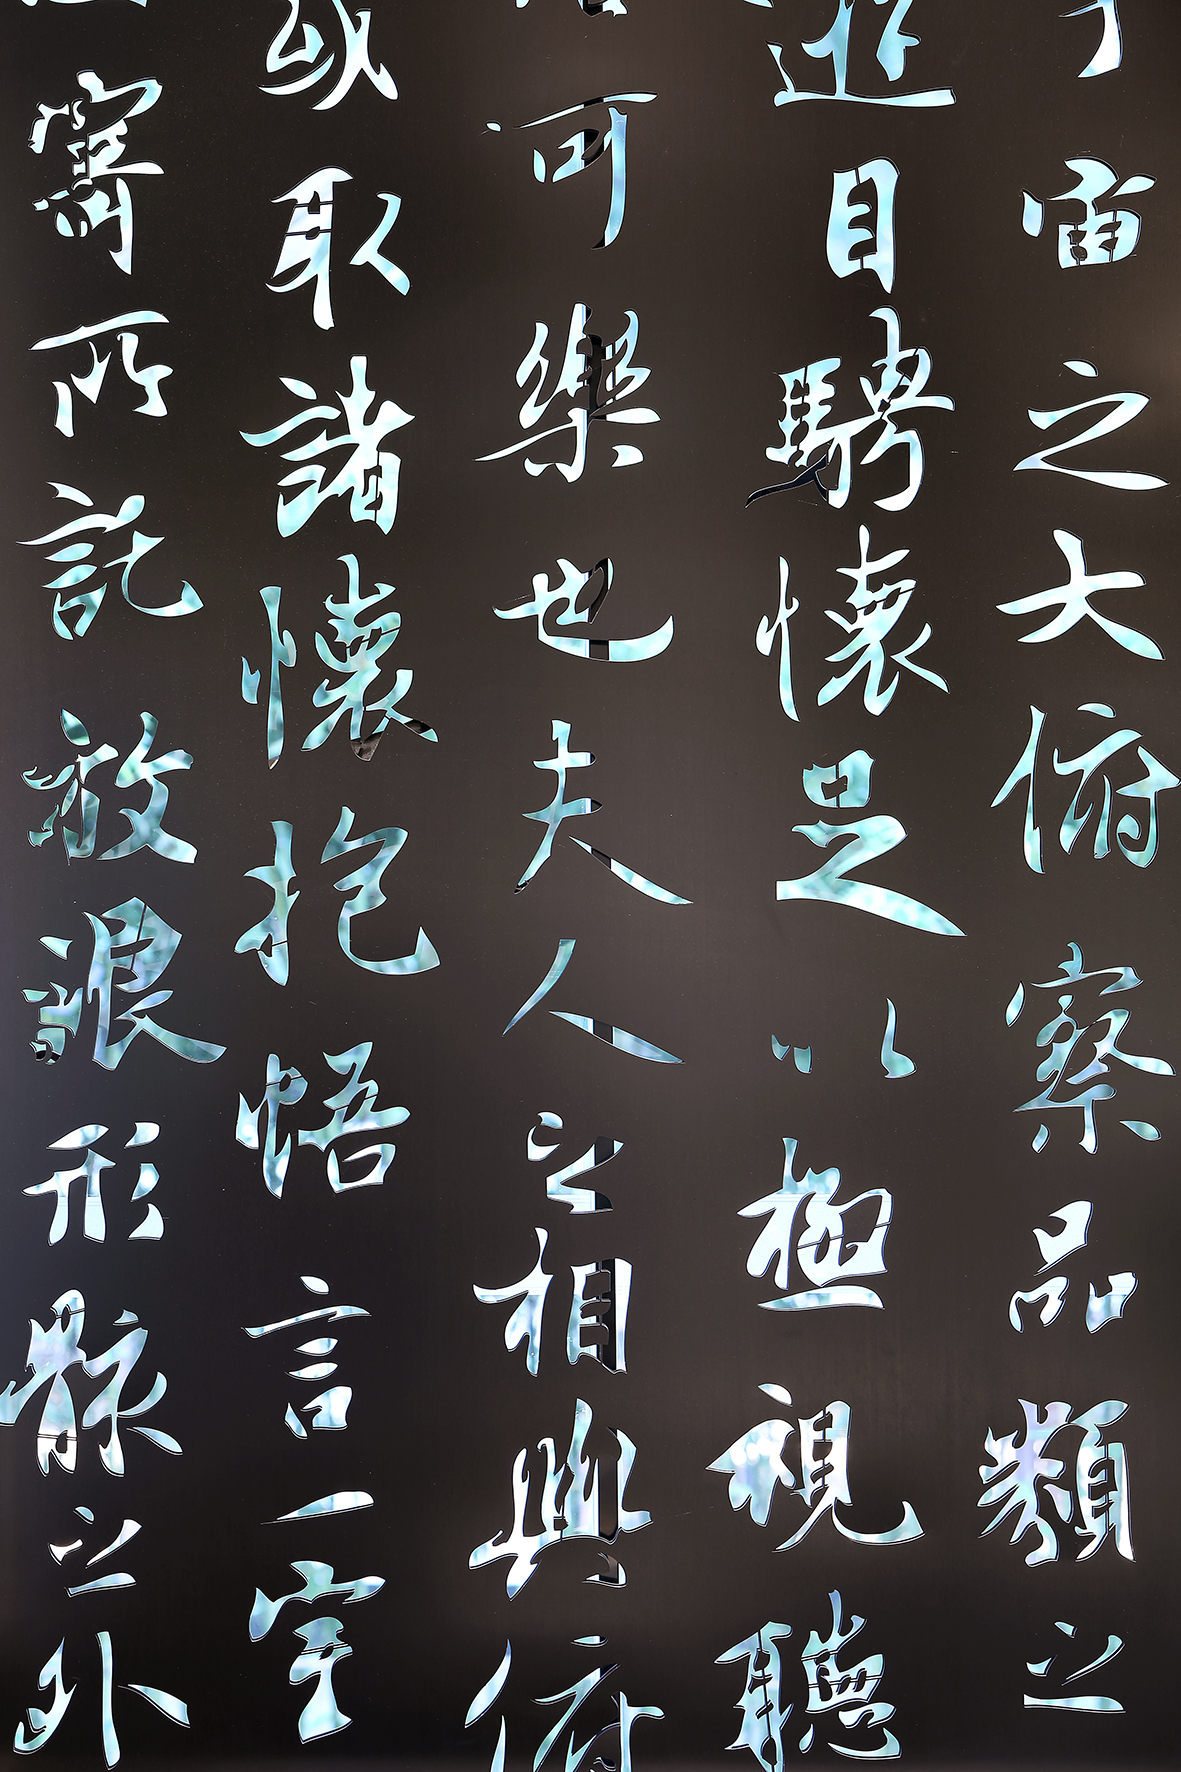 宙之大俯察品類之
遊目騁懷足以極視聽
可樂也夫人之相與俯
或取諸懷抱悟言一室
寄所託放浪形骸之外